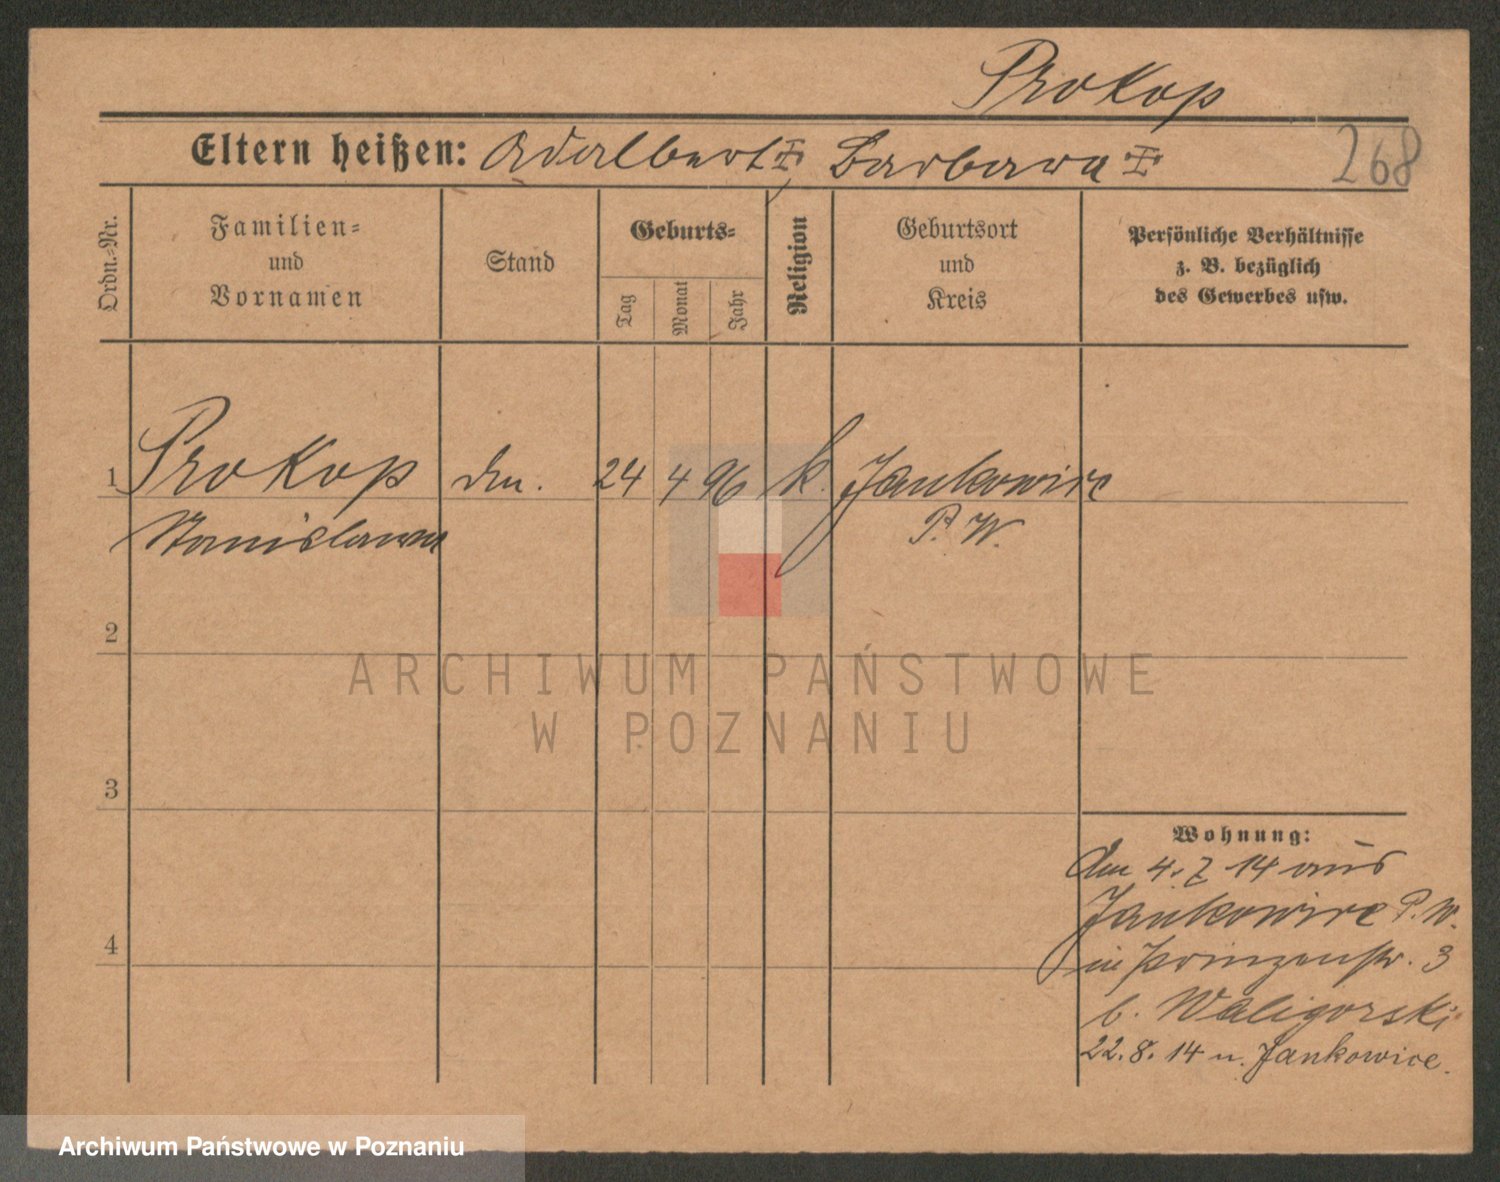 Prokop
Eltern heißen: Adalbert Barbara
268
Ordn.-Nr.
Familien-
und
Vornamen
Stand
Geburts-
Tag
Monat
Jahr
Religion
Geburtsort
und
Kreis
Persönliche Verhältnisse
z. B. bezüglich
des Gewerbes usw.
1
Prokop
24 4 96 k. Jankowice
Stanislawa
P. W.
2
ARCHIWUM PAŃSTWOWE
W POZNANIU
3
Wohnung:
4. 7 14 aus
Jankowice P. W.
4
in Prinzenstr. 3
b. Waligorski
22. 8. 14 n. Jankowice.
Archiwum Państwowe w Poznaniu